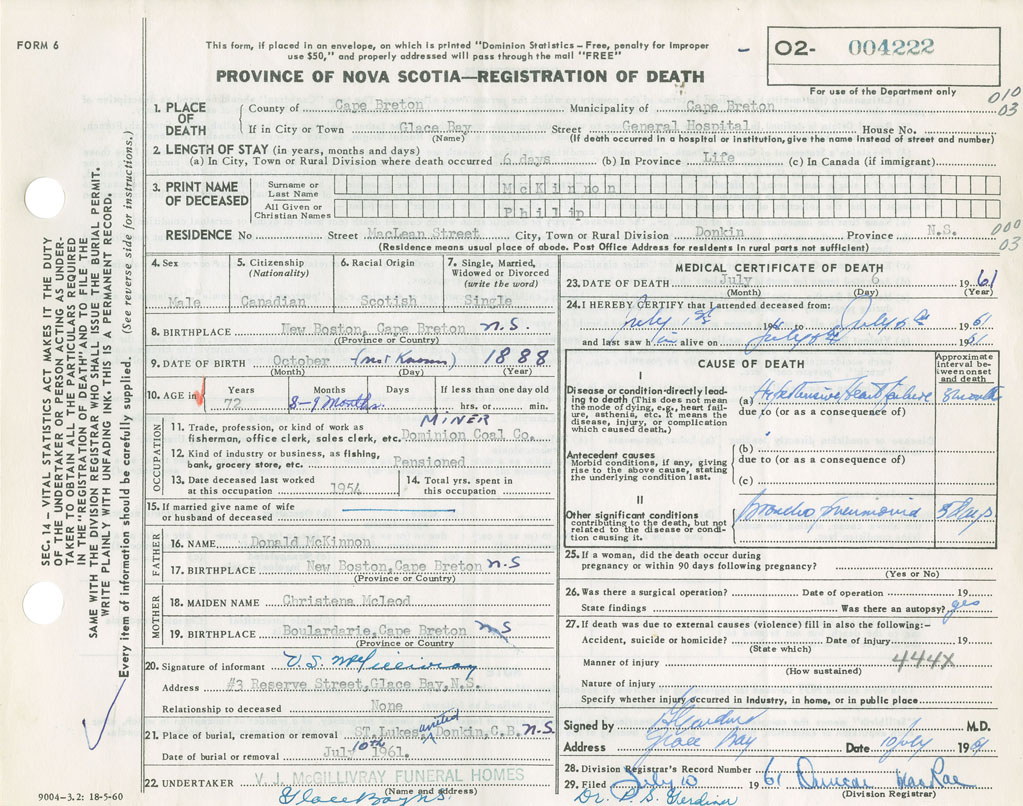 FORM 6
This form, if placed in an envelope, on which is printed "Dominion Statistics – Free, penalty for improper
use $50," and properly addressed will pass through the mail "FREE"
O2- 004222
PROVINCE OF NOVA SCOTIA—REGISTRATION OF DEATH
For use of the Department only
010
03
1. PLACE OF DEATH
County of Cape Breton Municipality of Cape Breton
If in City or Town Glace Bay Street General Hospital House No.
(Name) (If death occurred in a hospital or institution, give the name instead of street and number)
2. LENGTH OF STAY (in years, months and days)
(a) In City, Town or Rural Division where death occurred 6 days (b) In Province Life (c) In Canada (if immigrant)
3. PRINT NAME OF DECEASED
Surname or Last Name McKinnon
All Given or Christian Names Philip
RESIDENCE No Street MacLean Street City, Town or Rural Division Donkin Province N.S.
000
03
(Residence means usual place of abode. Post Office Address for residents in rural parts not sufficient)
4. Sex Male
5. Citizenship (Nationality) Canadian
6. Racial Origin Scotish
7. Single, Married, Widowed or Divorced (write the word) Single
8. BIRTHPLACE New Boston, Cape Breton N.S.
(Province or Country)
9. DATE OF BIRTH October (not Known) 1888
(Month) (Day) (Year)
10. AGE in Years 72 Months 8-9 Months Days If less than one day old hrs. or min.
OCCUPATION
MINER
11. Trade, profession, or kind of work as
fisherman, office clerk, sales clerk, etc. Dominion Coal Co.
12. Kind of industry or business, as fishing,
bank, grocery store, etc. Pensioned
13. Date deceased last worked
at this occupation 1954
14. Total yrs. spent in
this occupation
15. If married give name of wife
or husband of deceased
FATHER
16. NAME Donald McKinnon
17. BIRTHPLACE New Boston, Cape Breton N.S
(Province or Country)
MOTHER
18. MAIDEN NAME Christena Mcleod
19. BIRTHPLACE Boulardarie, Cape Breton NS
(Province or Country
20. Signature of informant V. J. McGillivray
Address #3 Reserve Street, Glace Bay, N.S.
Relationship to deceased None
21. Place of burial, cremation or removal ST. Lukes united Donkin, C.B. N.S.
Date of burial or removal July 10th 1961.
22. UNDERTAKER V. J. McGILLIVRAY FUNERAL HOMES
(Name and address)
Glace Bay NS
9004-3.2: 18-5-60
SEC. 14 – VITAL STATISTICS ACT MAKES IT THE DUTY
OF THE UNDERTAKER OR PERSON ACTING AS UNDER-
TAKER TO OBTAIN ALL THE PARTICULARS REQUIRED
IN THE "REGISTRATION OF DEATH" AND TO FILE THE
SAME WITH THE DIVISION REGISTRAR WHO SHALL ISSUE THE BURIAL PERMIT.
WRITE PLAINLY WITH UNFADING INK. THIS IS A PERMANENT RECORD.
Every item of information should be carefully supplied. (See reverse side for instructions.)
MEDICAL CERTIFICATE OF DEATH
23. DATE OF DEATH July 6 1961
(Month) (Day) (Year)
24. I HEREBY CERTIFY that I attended deceased from:
July 1st 196 to July 6th 1961
and last saw him alive on July 6th 1961
CAUSE OF DEATH
Approximate interval between onset and death
I
Disease or condition directly leading to death (This does not mean the mode of dying, e.g., heart failure, asthenia, etc. It means the disease, injury, or complication which caused death.)
(a) Hypertensive Heart failure 8 month
due to (or as a consequence of)
Antecedent causes
Morbid conditions, if any, giving rise to the above cause, stating the underlying condition last.
(b)
due to (or as a consequence of)
(c)
II
Other significant conditions
contributing to the death, but not related to the disease or condition causing it.
Broncho pneumonia days
25. If a woman, did the death occur during
pregnancy or within 90 days following pregnancy?
(Yes or No)
26. Was there a surgical operation? Date of operation 19
State findings Was there an autopsy? yes
27. If death was due to external causes (violence) fill in also the following:–
Accident, suicide or homicide? Date of injury 19
(State which)
Manner of injury 444X
(How sustained)
Nature of injury
Specify whether injury occurred in industry, in home, or in public place
Signed by M.D.
Address Glace Bay Date 10 July 1961
28. Division Registrar's Record Number 61
29. Filed July 10 Duncan MacRae
(Division Registrar)